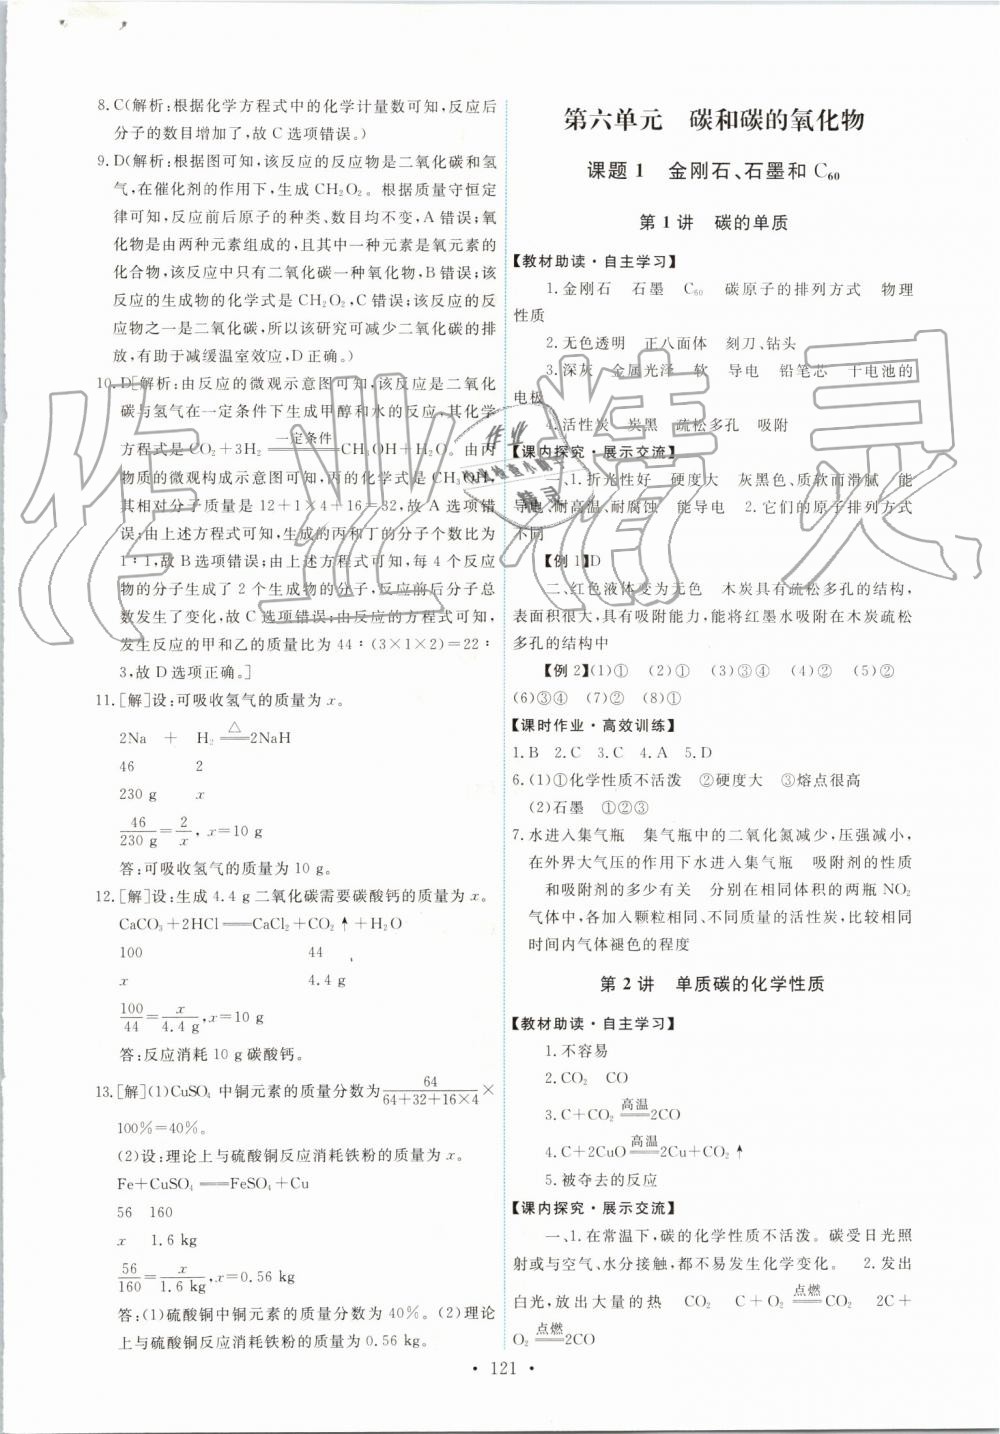 8. C(解析:根据化学方程式中的化学计量数可知,反应后
分子的数目增加了,故C选项错误。)
9. D(解析:根据图可知,该反应的反应物是二氧化碳和氢
气,在催化剂的作用下,生成CH₂O₂。根据质量守恒定
律可知,反应前后原子的种类、数目均不变,A错误;氧
化物是由两种元素组成的,且其中一种元素是氧元素的
化合物,该反应中只有二氧化碳一种氧化物,B错误;该
反应的生成物的化学式是CH₂O₂,C错误;该反应的反
应物之一是二氧化碳,所以该研究可减少二氧化碳的排
放,有助于减缓温室效应,D正确。)
10. D[解析:由反应的微观示意图可知,该反应是二氧化
碳与氢气在一定条件下生成甲醇和水的反应,其化学
方程式是CO₂+3H₂ 一定条件 CH₃OH+H₂O。由丙
物质的微观构成示意图可知,丙的化学式是CH₃OH,
其相对分子质量是12+1×4+16=32,故A选项错
误;由上述方程式可知,生成的丙和丁的分子个数比为
1∶1,故B选项错误;由上述方程式可知,每4个反应
物的分子生成了2个生成物的分子,反应前后分子总
数发生了变化,故C选项错误;由反应的方程式可知,
发生反应的甲和乙的质量比为44∶(3×1×2)=22∶
3,故D选项正确。]
11. [解]设:可吸收氢气的质量为x。
2Na + H₂ ══△══ 2NaH
46 2
230 g x
46/230 g=2/x, x=10 g
答:可吸收氢气的质量为10 g。
12. [解]设:生成4.4 g二氧化碳需要碳酸钙的质量为x。
CaCO₃+2HCl══CaCl₂+CO₂↑+H₂O
100 44
x 4.4 g
100/44=x/4.4 g,x=10 g
答:反应消耗10 g碳酸钙。
13. [解](1)CuSO₄中铜元素的质量分数为64/(64+32+16×4)×
100%=40%。
(2)设:理论上与硫酸铜反应消耗铁粉的质量为x。
Fe+CuSO₄══FeSO₄+Cu
56 160
x 1.6 kg
56/160=x/1.6 kg,x=0.56 kg
答:(1)硫酸铜中铜元素的质量分数为40%。(2)理论
上与硫酸铜反应消耗铁粉的质量为0.56 kg。
第六单元 碳和碳的氧化物
课题1 金刚石、石墨和C₆₀
第1讲 碳的单质
【教材助读·自主学习】
1. 金刚石 石墨 C₆₀ 碳原子的排列方式 物理
性质
2. 无色透明 正八面体 刻刀、钻头
3. 深灰 金属光泽 软 导电 铅笔芯 干电池的
电极
4. 活性炭 炭黑 疏松多孔 吸附
【课内探究·展示交流】
一、1. 折光性好 硬度大 灰黑色、质软而滑腻 能
导电、耐高温、耐腐蚀 能导电 2. 它们的原子排列方式
不同
【例1】D
二、红色液体变为无色 木炭具有疏松多孔的结构,
表面积很大,具有吸附能力,能将红墨水吸附在木炭疏松
多孔的结构中
【例2】(1)① (2)① (3)③④ (4)② (5)②
(6)③④ (7)② (8)①
【课时作业·高效训练】
1. B 2. C 3. C 4. A 5. D
6. (1)①化学性质不活泼 ②硬度大 ③熔点很高
(2)石墨 ①②③
7. 水进入集气瓶 集气瓶中的二氧化氮减少,压强减小,
在外界大气压的作用下水进入集气瓶 吸附剂的性质
和吸附剂的多少有关 分别在相同体积的两瓶NO₂
气体中,各加入颗粒相同、不同质量的活性炭,比较相同
时间内气体褪色的程度
第2讲 单质碳的化学性质
【教材助读·自主学习】
1. 不容易
2. CO₂ CO
3. C+CO₂ ══高温══ 2CO
4. C+2CuO ══高温══ 2Cu+CO₂↑
5. 被夺去的反应
【课内探究·展示交流】
一、1. 在常温下,碳的化学性质不活泼。碳受日光照
射或与空气、水分接触,都不易发生化学变化。 2. 发出
白光,放出大量的热 CO₂ C+O₂ ══点燃══ CO₂ 2C+
O₂ ══点燃══ 2CO
·121·
作业精灵
作业
检查小助手
精灵